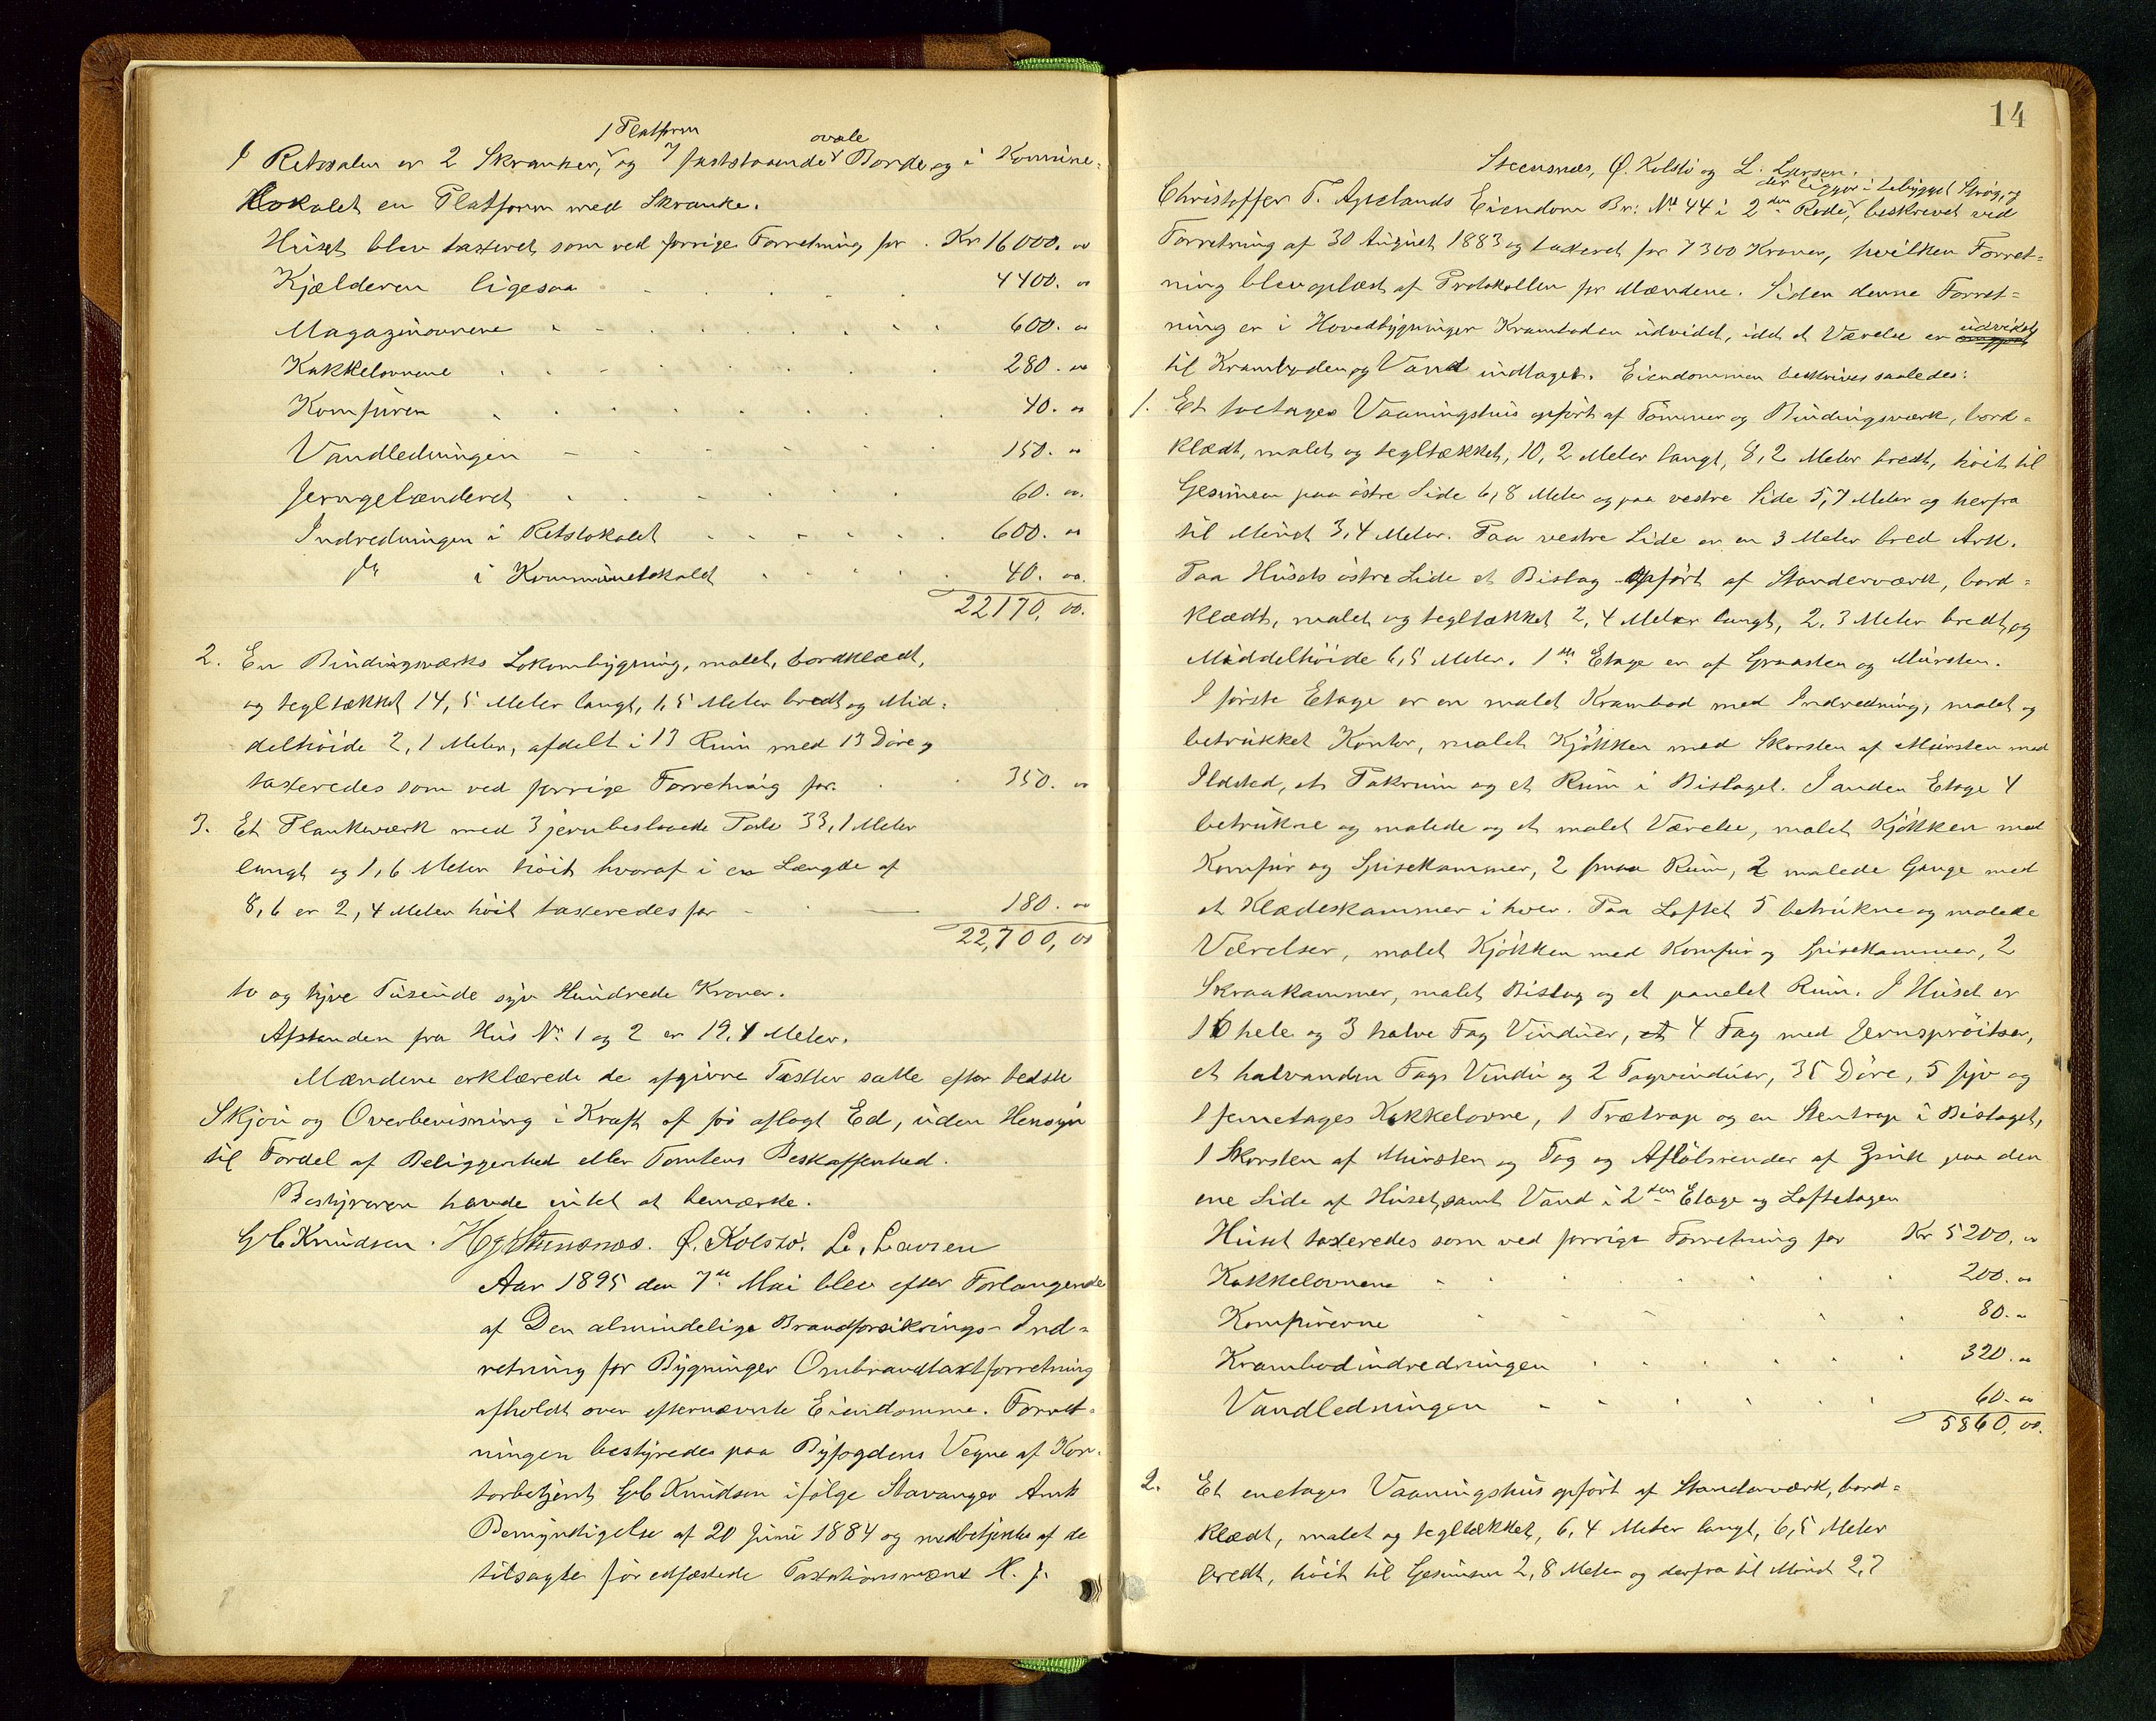 1 Platform ovale
I Retssalen er 2 Skranker, og 7 faststaaende Borde og i Kommune=
lokalet en Platform med Skranke.
Huset blev taxeret som ved forrige Forretning for . Kr 16000. 00
Kjælderen ligesaa 4400. 00
Magazinovnene 600. 00
Kakkelovnene 280. 00
Komfüren 40. 00
Vandledningen 150. 00
Jerngelænderet 60. 00.
Indredningen i Retslokalet 600. 00
do i Kommunelokalet 40. 00.
22170, 00.
2. En Bindingsværks Lokumbygning, malet, bordklædt,
og tegltækket 14,5 Meter langt, 1,5 Meter bredt og Mid=
delhöide 2,1 Meter, afdelt i 13 Rum med 13 Döre og
taxeredes som ved forrige Forretning for. 350. 00
3. Et Plankeværk med 3 jernbeslaaede Porte 33,1 Meter
langt og 1,6 Meter höit hvoraf i en Længde af
8,6 er 2,4 Meter höit taxeredes for 180. 00
22,700, 00
to og tyve Tusende syv Hundrede Kroner.
Afstanden fra Hus No. 1 og 2 er 19,4 Meter.
Mændene erklærede de afgivne Taxter satte efter bedste
Skjön og Overbevisning i Kraft af för aflagt Ed, uden Hensyn
til Fordel af Beliggenhed eller Tomtens Beskaffenhed.
Bestyreren havde intet at bemærke.
G C Knudsen. H J Steensnæs. Ø. Kolstö. L. Larsen
Aar 1895 den 7de Mai blev efter Forlangende
af Den almindelige Brandforsikrings-Ind=
retning for Bygninger Ombrandtaxtforretning
afholdt over efternævnte Eiendomme. Forret=
ningen bestyredes paa Byfogdens Vegne af Kon=
torbetjent G C Knudsen ifölge Stavanger Amts
Bemyndigelse af 20 Juni 1884 og medbetjentes af de
tilsagte för edfæstede Taxationsmænd H. J.
14
Steensnæs, Ø. Kolstö og L. Larsen.
der ligger i bebygget Strög, og
Christoffer T. Apelands Eiendom Br: No 44 i 2den Rode, beskrevet ved
Forretning af 30 August 1883 og taxeret for 7300 Kroner, hvilken Forret=
ning blev oplæst af Protokollen for Mændene. Siden denne Forret=
ning er i Hovedbygningen Kramboden udvidet, idet et Værelse er udvidet
til Kramboden og Vand indtaget. Eiendommen beskrives saaledes:
1. Et toetages Vaaningshus opfört af Tömmer og Bindingsværk, bord=
klædt, malet og tegltækket, 10,2 Meter langt, 8,2 Meter bredt, höit til
Gesimsen paa östre Side 6,8 Meter og paa vestre Side 5,7 Meter og herfra
til Mönet 3,4 Meter. Paa vestre Side er en 3 Meter bred Ark.
Paa Husets östre Side et Bislag opfört af Standerværk, bord=
klædt, malet og tegltækket 2,4 Meter langt, 2,3 Meter bredt, og
Middelhöide 6,5 Meter. 1ste Etage er af Graasten og Mursten.
I förste Etage er en malet Krambod med Indredning, malet og
betrukket Kontor, malet Kjökken med Skorsten af Mursten med
Ildsted, et Pakrum og et Rum i Bislaget. I anden Etage 4
betrukne og malede og et malet Værelse, malet Kjökken med
Komfur og Spisekammer, 2 smaa Rum, 2 malede Gange med
et Klædeskammer i hver. Paa Loftet 5 betrukne og malede
Værelser, malet Kjökken med Komfur og Spisekammer, 2
Skraakammer, malet Bislag og et panelet Rum. I Huset er
16 hele og 3 halve Fag Vinduer, 4 Fag med Jernspröitser,
et halvanden Fags Vindu og 2 Tagvinduer, 35 Döre, 5 fyr og
1 femetages Kakkelovne, 1 Trætrap og en Stentrap i Bislaget,
1 Skorsten af Mursten og Tag og Aflöbsrender af Zink paa den
ene Side af Huset, samt Vand i 2den Etage og Loftetagen
Huset taxeredes som ved forrige Forretning for Kr 5200. 00
Kakkelovnene 200. 00
Komfurerne 80. 00
Krambodindredningen 320. 00
Vandledningen 60. 00
5860, 00.
2. Et enetages Vaaningshus opfört af Standerværk, bord=
klædt, malet og tegltækket, 6,4 Meter langt, 6,5 Meter
bredt, höit til Gesimsen 2,8 Meter og derfra til Mönet 2,7